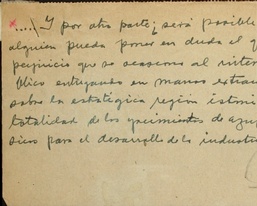 ....) Y por otra parte ¿será posible
alguien pueda poner en duda el
perjuicio que se ocasiona al inter
blico entregando en manos extran
sobre la estratégica región istmi
totalidad de los yacimientos de azu
sico para el desarrollo de la industr